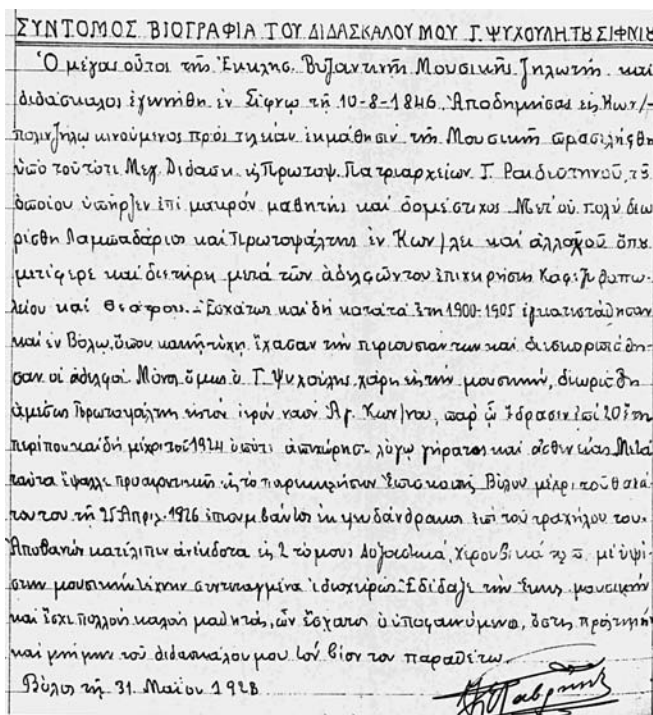 ΣΥΝΤΟΜΟΣ ΒΙΟΓΡΑΦΙΑ ΤΟΥ ΔΙΔΑΣΚΑΛΟΥ ΜΟΥ Γ. ΨΥΧΟΥΛΗ ΤΟΥ ΣΙΦΝΙΟΥ
Ὁ μέγας οὗτος τῆς Ἐκκλησ. Βυζαντινῆς Μουσικῆς ζηλωτὴς καὶ
διδάσκαλος ἐγεννήθη ἐν Σίφνῳ τῇ 10-8-1846. Ἀποδημήσας εἰς Κων/-
πολιν ζήλῳ κινούμενος πρὸς τελείαν ἐκμάθησιν τῆς Μουσικῆς
ὑπὸ τοῦ τότε Μεγ. Διδασκ. Πρωτοψ. Πατριαρχείων Γ. Ραιδεστηνοῦ, τοῦ
ὁποίου ὑπῆρξεν ἐπὶ μακρὸν μαθητὴς καὶ δομέστιχος. Μετ' οὐ πολὺ διω
ρίσθη Λαμπαδάριος καὶ Πρωτοψάλτης ἐν Κων/λει καὶ ἀλλαχοῦ ὅπου
μετέφερε καὶ διετήρει μετὰ τῶν ἀδελφῶν του ἐπιχείρησιν Καφεζυθοπω-
λείου καὶ Θεάτρου. Ἐσχάτως καὶ δὴ κατὰ τὰ ἔτη 1900-1905 ἐγκατεστάθησαν
καὶ ἐν Βόλῳ, ὅπου κακῇ τύχῃ ἔχασαν τὴν περιουσίαν των καὶ διεσκορπίσθη-
σαν οἱ ἀδελφοί. Μόνος ὅμως ὁ Γ. Ψυχούλης χάρις εἰς τὴν μουσικήν, διωρίσθη
ἀμέσως Πρωτοψάλτης εἰς τὸν ἱερὸν ναὸν Ἁγ. Κων/νου, παρ' ᾧ ἔδρασεν ἐπὶ 20 ἔτη
περίπου καὶ δὴ μέχρι τοῦ 1924 ὁπότε ἀπεχώρησε λόγῳ γήρατος καὶ ἀσθενείας. Μετὰ
ταῦτα ἔψαλλε προαιρετικῶς εἰς τὸ παρεκκλήσιον Ἐπισκοπῆς Βόλου μέχρι τοῦ θανά
του του τῇ 25 Ἀπριλ. 1926 ἐπισυμβάντος ἐκ ψευδάνθρακος ἐπὶ τοῦ τραχήλου του.
Ἀποθανὼν κατέλιπεν ἀνέκδοτα εἰς 2 τόμους Δοξαστικά, Χερουβικά κλπ. μὲ ὑψί-
στην μουσικὴν τέχνην συντεταγμένα ἰδιοχείρως. Ἐδίδαξε τὴν μουσικὴν
καὶ ἔσχε πολλοὺς καλοὺς μαθητάς, ὧν ἔσχατος ὁ ὑποφαινόμενος, ὅστις πρὸς τιμὴν
καὶ μνήμην τοῦ διδασκάλου μου τὸν βίον του παραθέτω.
Βόλος τῇ 31 Μαΐου 1928